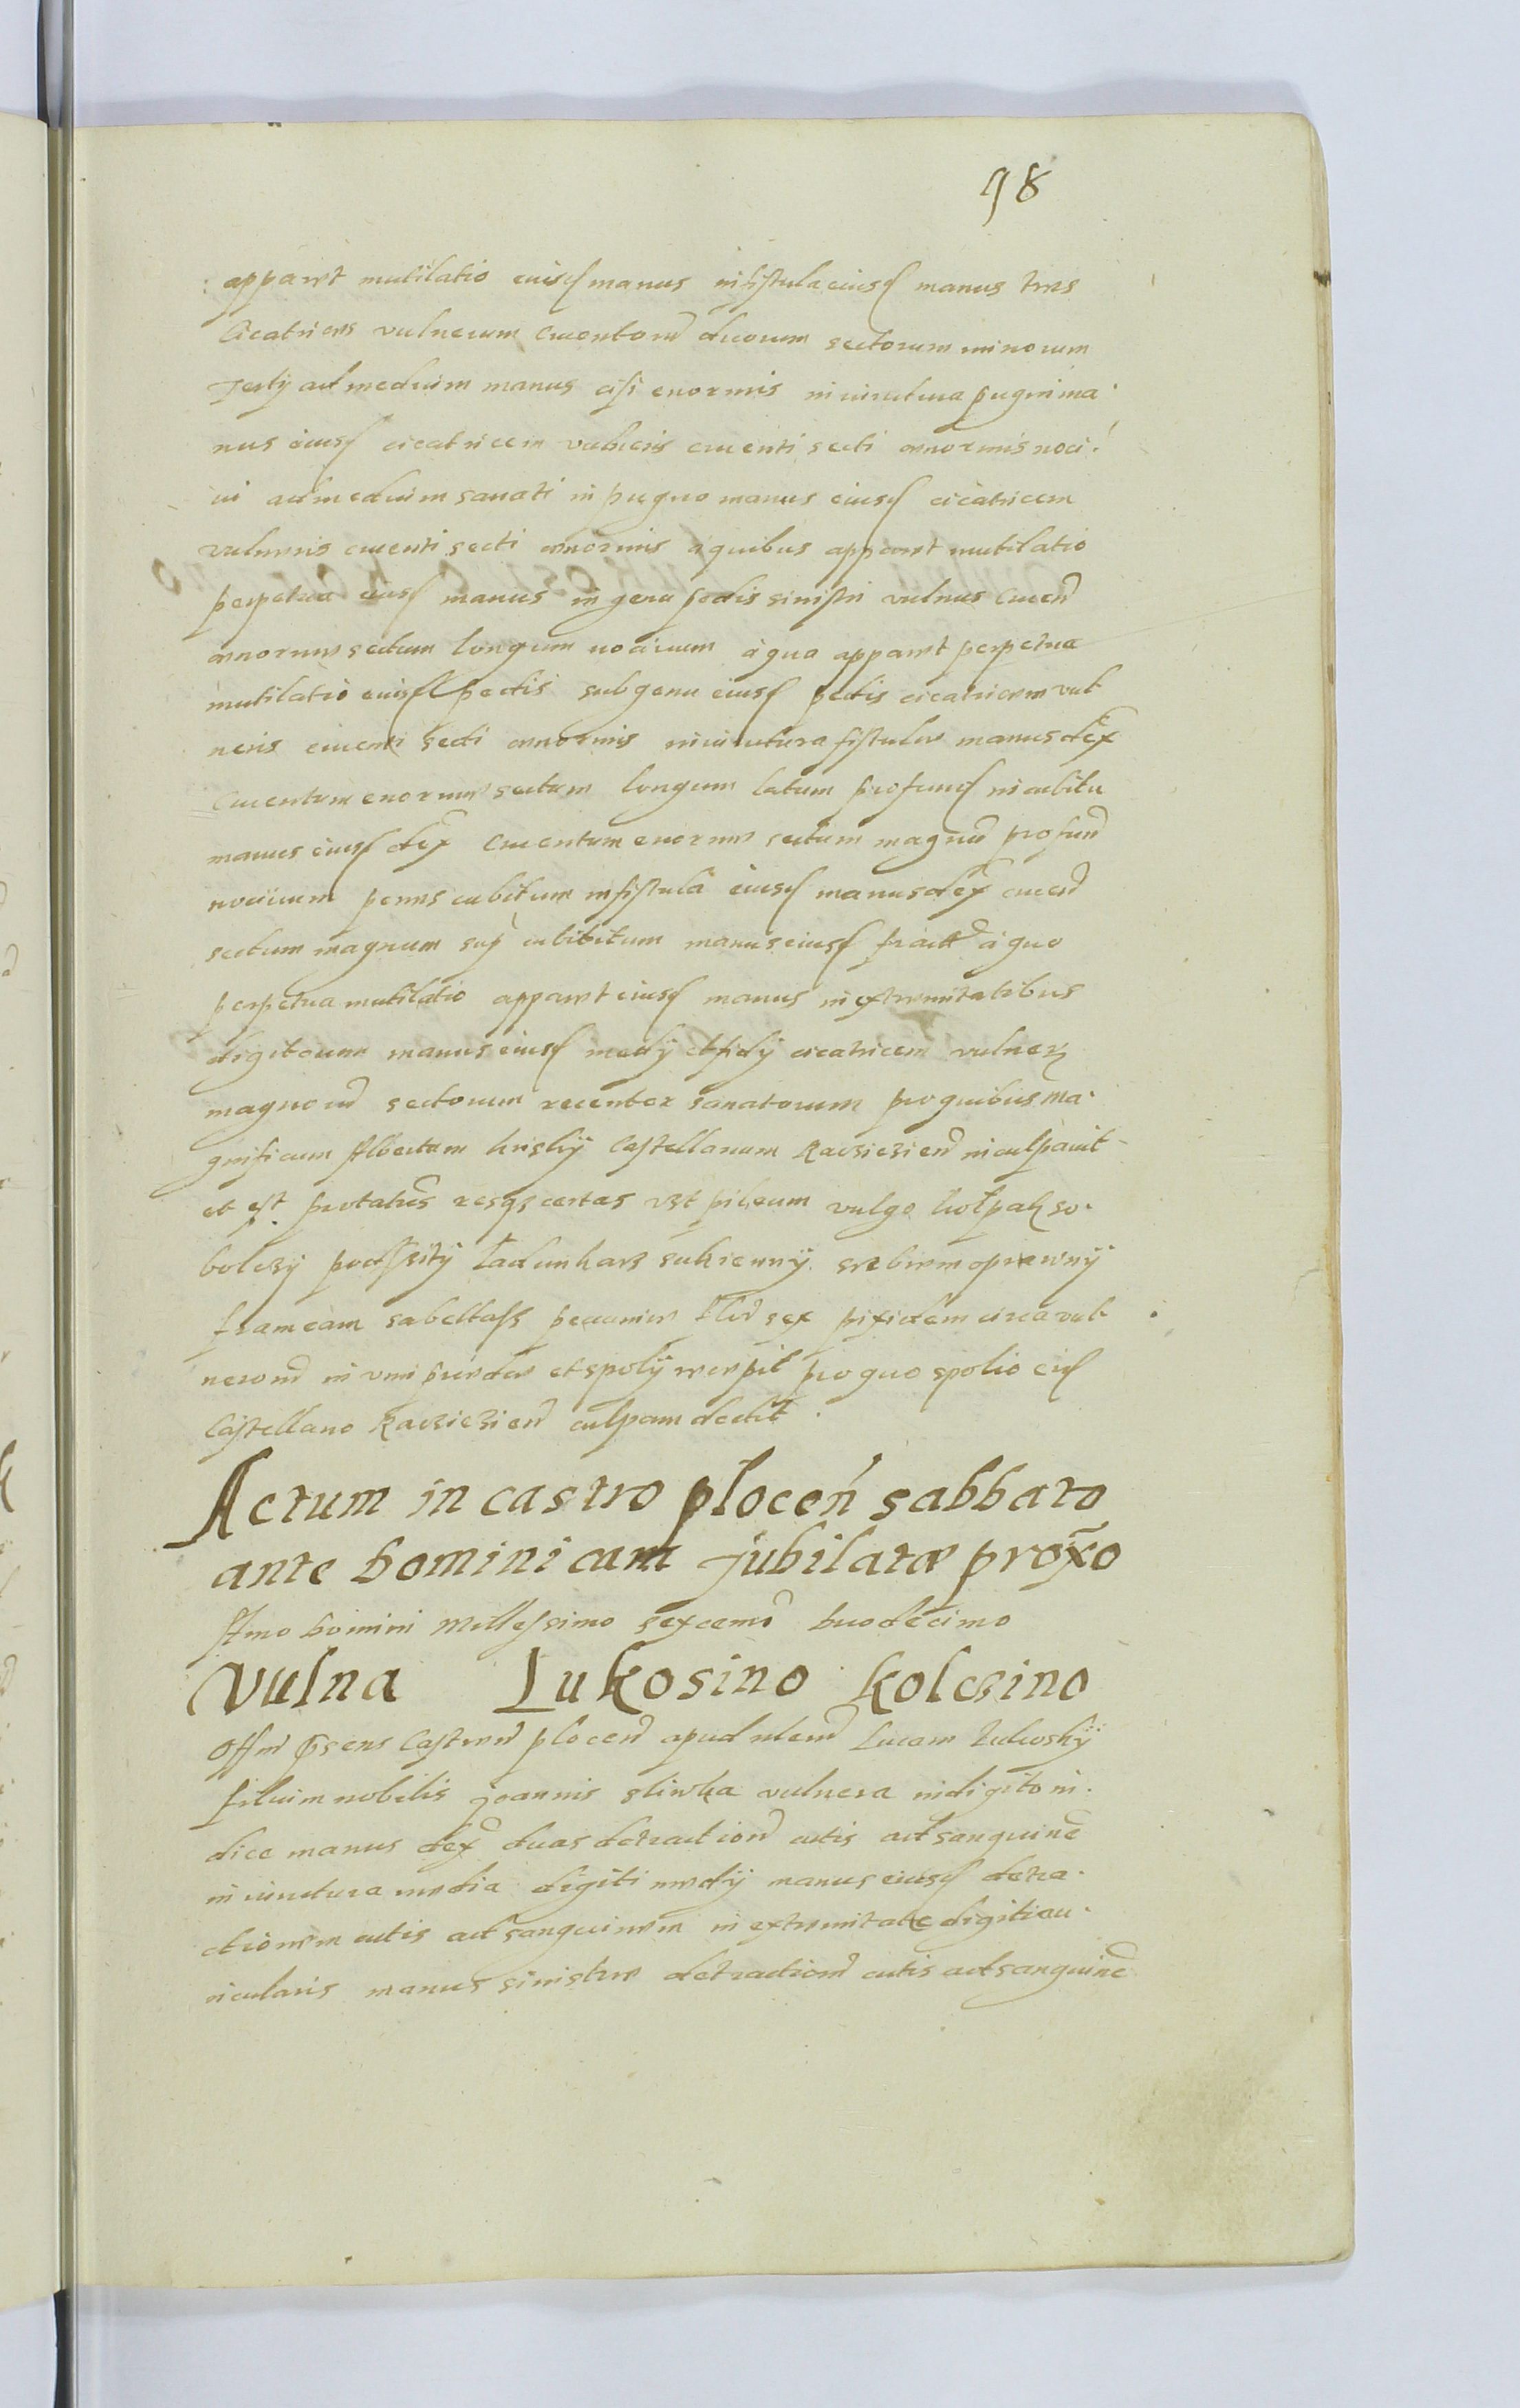 98
apparet mutilatio eiusd manus in fistula eiusd manus tres
Cicatrices vulnerum cruentorum duorum sectorum minorum
Tertij ad medium manus cisi enormis in iunctura pugni ma
nus eiusd cicatricem vulneris cruenti secti enormis noci
ui ad medium sanati in pugno manus eiusd cicatricem
vulneris cruenti secti enormis a quibus apparet mutilatio
perpetua eiusd manus in genu pedis sinistri vulnus cruen
enorme sectum longum nociuum a quo apparet perpetua
mutilatio eiusd pedis sub genu eiusd pedis cicatricem vul
neris cruenti secti enormis in iunctura fistulae manus dex
cruentum enorme sectum longum latum profund in cubitu
manus eiusd dex cruentum enorme sectum magnum profund
nociuum penes cubitum in fistula eiusd manus dex cruen
sectum magnum sup cubibitum manus eiusd a quo
perpetua mutilatio apparet eiusd manus in extremitatibus
digitorum manus eiusd medij et cicatricem vulner
magnorum sectorum recenter sanatorum pro quibus ma
gnificum Albertum kriskij Castellanum Racziezien inculpauit
et est protatus resqs certas vzt pileum vulgo kolpak so
bolczy podssity Ladunkare sukiennÿ srebrem oprawnÿ
frameam sabeltass pecuniae flor sex pixidem circa vul
nerorum et spolij recepit pro quo spolio eid
Castellano Racziezien culpam dedit
Actum in castro plocen sabbato
ante Dominicam Jubilatae proxo
Anno Domini Millessimo sexcenn Duodecimo
Vulna Lukosino Kolczino
Offm pnsens Castren plocen apud nlem Lucam Lukoskÿ
filium nobilis Joannis sliwka vulnera in digito in
dice manus dex duas detraction cutis ad sanguine
in iunctura media digiti medij manus eiusd detra
ctionem cutis ad sanguinem in extremitate digiti au
ricularis manus sinistrae detraction cutis ad sanguine